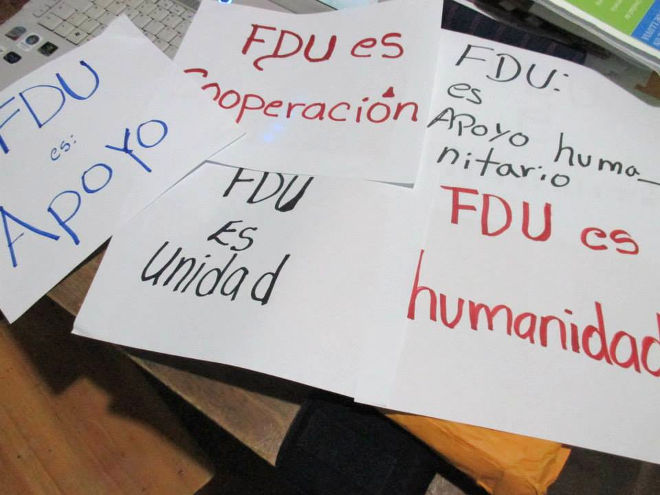 FDU
es:
APOYO
FDU es
Cooperación
FDU
ES
unidad
FDU:
es
APoyo huma_
nitario
FDU es
humanidad